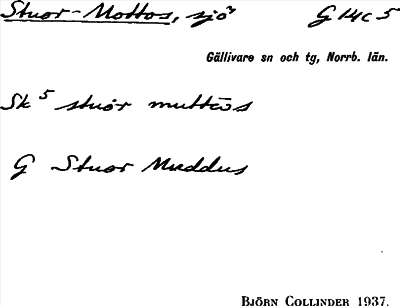 Stuor-Mottos, sjö² G 14c 5
Gällivare sn och tg, Norrb. län.
Sk⁵ stuor muttos
G Stuor Muddus
BJÖRN COLLINDER 1937.